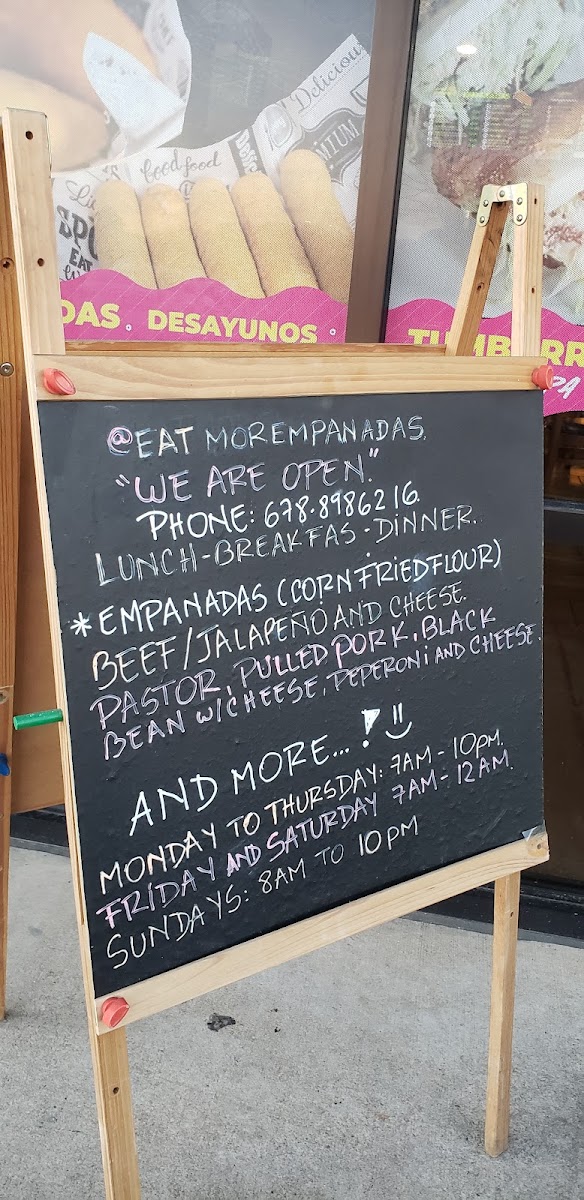 Delicious
food food
PREMIUM
EAT
DAS. DESAYUNOS
@EAT MOREMPANADAS.
"WE ARE OPEN."
PHONE: 678-8986216.
LUNCH-BREAKFAS-DINNER.
*EMPANADAS (CORN FRIED FLOUR)
BEEF/JALAPEÑO AND CHEESE.
PASTOR, PULLED PORK, BLACK
BEAN W/CHEESE, PEPERONI AND CHEESE.
AND MORE...! =)
MONDAY TO THURSDAY: 7AM-10PM.
FRIDAY AND SATURDAY 7AM-12AM.
SUNDAYS: 8AM TO 10PM